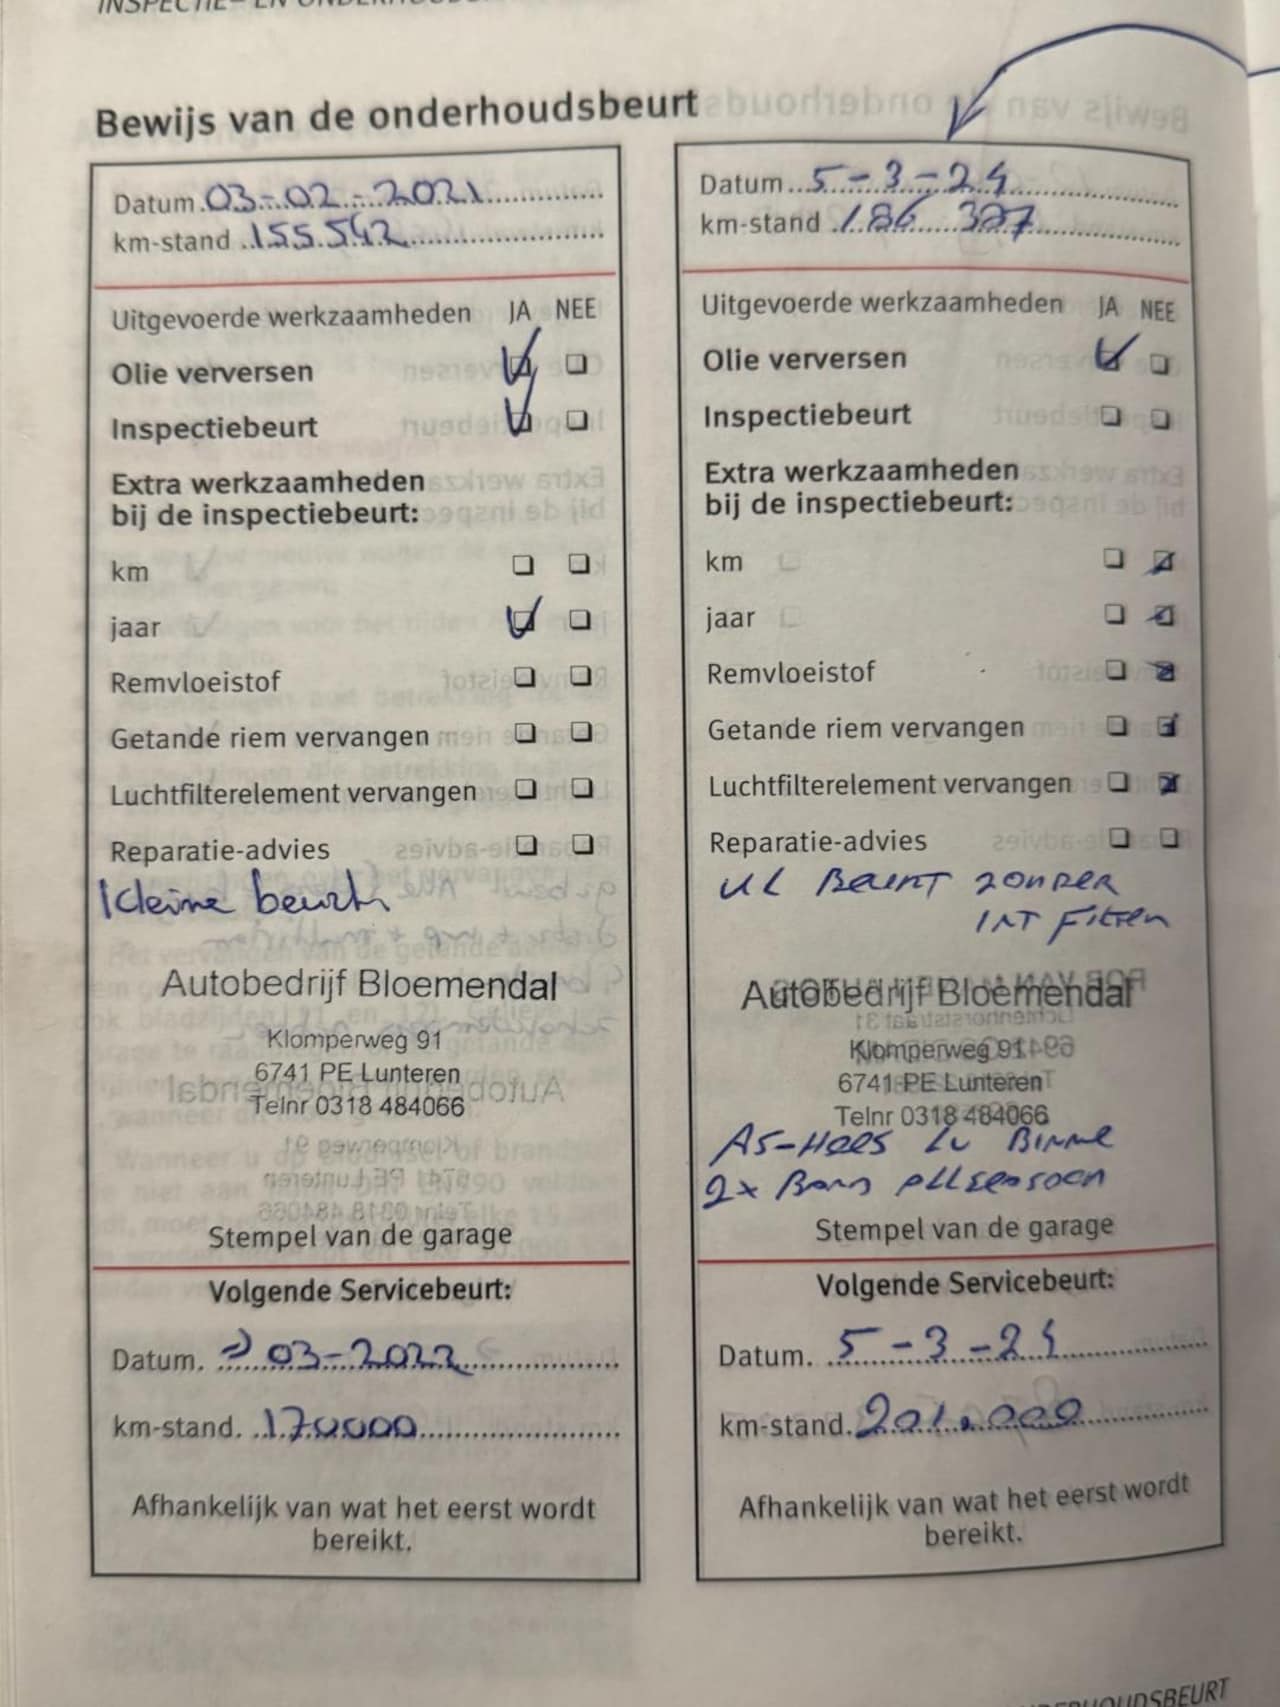 INSPECTIE- EN
Bewijs van de onderhoudsbeurt
Datum 03-02-2021
km-stand 155.542
Uitgevoerde werkzaamheden JA NEE
Olie verversen
Inspectiebeurt
Extra werkzaamheden
bij de inspectiebeurt:
km
jaar
Remvloeistof
Getande riem vervangen
Luchtfilterelement vervangen
Reparatie-advies
Kleine beurt
Autobedrijf Bloemendal
Klomperweg 91
6741 PE Lunteren
Telnr 0318 484066
Stempel van de garage
Volgende Servicebeurt:
Datum. 03-2022
km-stand. 170000
Afhankelijk van wat het eerst wordt
bereikt.
Datum 5-3-24
km-stand 186 327
Uitgevoerde werkzaamheden JA NEE
Olie verversen
Inspectiebeurt
Extra werkzaamheden
bij de inspectiebeurt:
km
jaar
Remvloeistof
Getande riem vervangen
Luchtfilterelement vervangen
Reparatie-advies
Beurt zonder
INT Filter
Autobedrijf Bloemendal
Klomperweg 91
6741 PE Lunteren
Telnr 0318 484066
AS-Hoes LV Binne
2x Band allseasoen
Stempel van de garage
Volgende Servicebeurt:
Datum. 5-3-25
km-stand. 201.000
Afhankelijk van wat het eerst wordt
bereikt.